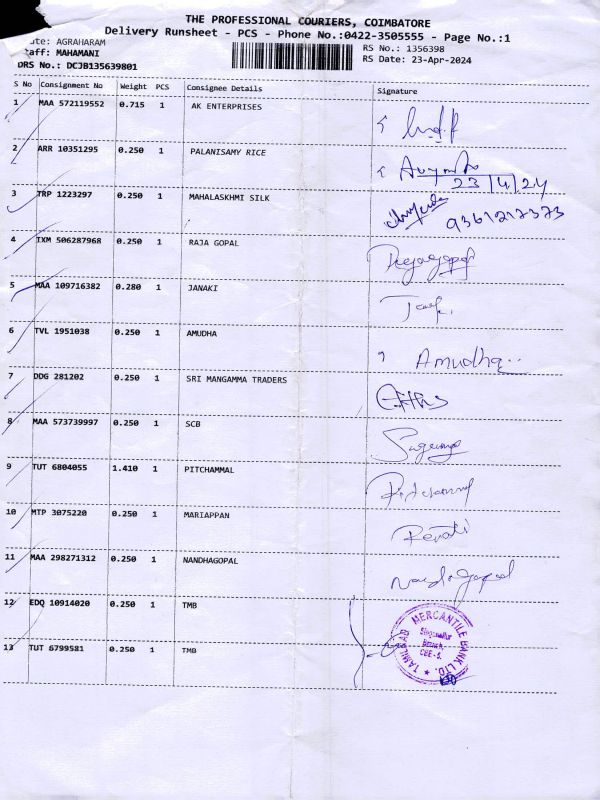 THE PROFESSIONAL COURIERS, COIMBATORE
Delivery Runsheet - PCS - Phone No.:0422-3505555 - Page No.:1
ate: AGRAHARAM
RS No.: 1356398
taff: MAHAMANI
RS Date: 23-Apr-2024
DRS No.: DCJB135639801
S No Consignment No Weight PCS Consignee Details Signature
1 MAA 572119552 0.715 1 AK ENTERPRISES
2 ARR 10351295 0.250 1 PALANISAMY RICE
23/4/24
3 TRP 1223297 0.250 1 MAHALASKHMI SILK
9361217373
4 TXM 506287968 0.250 1 RAJA GOPAL Rajagopal
5 MAA 109716382 0.280 1 JANAKI
6 TVL 1951038 0.250 1 AMUDHA Amudha
7 DDG 281202 0.250 1 SRI MANGAMMA TRADERS
8 MAA 573739997 0.250 1 SCB
9 TUT 6804055 1.410 1 PITCHAMMAL
10 MTP 3075220 0.250 1 MARIAPPAN Revati
11 MAA 298271312 0.250 1 NANDHAGOPAL
12 EDQ 10914020 0.250 1 TMB
13 TUT 6799581 0.250 1 TMB
TAMILNAD MERCANTILE BANK LTD.
Singanallur
Branch,
CBE-5.